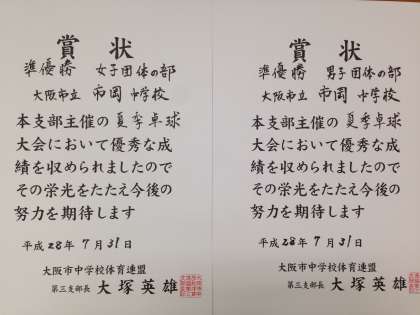 賞状
準優勝 女子団体の部
大阪市立 市岡 中学校
本支部主催の 夏季卓球
大会において優秀な成
績を収められましたので
その栄光をたたえ今後の
努力を期待します
平成28年7月31日
大阪市中学校体育連盟
第三支部長 大塚英雄
賞状
準優勝 男子団体の部
大阪市立 市岡 中学校
本支部主催の 夏季卓球
大会において優秀な成
績を収められましたので
その栄光をたたえ今後の
努力を期待します
平成28年7月31日
大阪市中学校体育連盟
第三支部長 大塚英雄